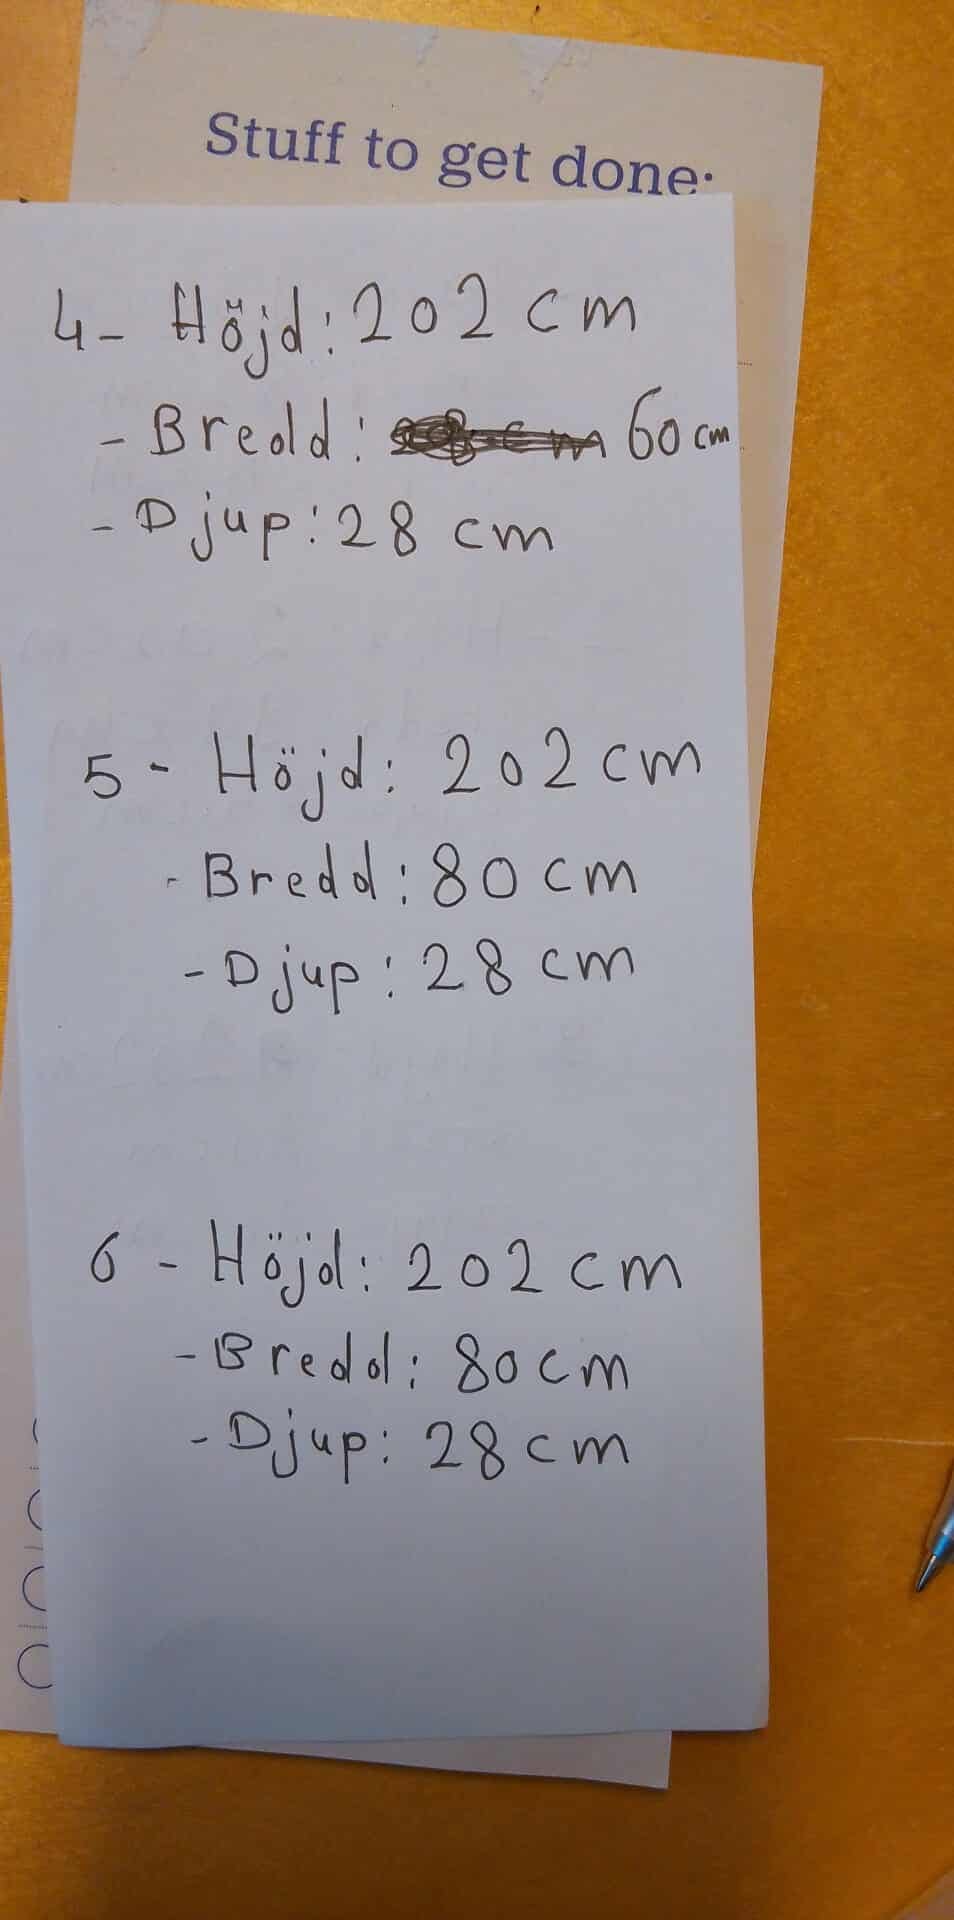 Stuff to get done:
4- Höjd: 202 cm
- Bredd: 60 cm
- Djup: 28 cm
5 - Höjd: 202 cm
- Bredd: 80 cm
- Djup: 28 cm
6 - Höjd: 202 cm
- Bredd: 80 cm
- Djup: 28 cm